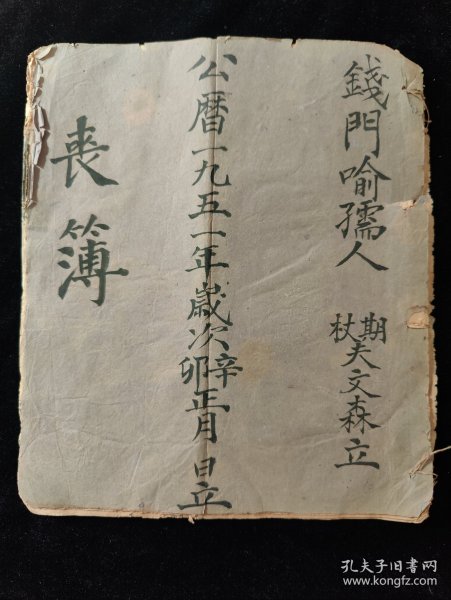 錢門喻孺人
期杖夫文森立
公曆一九五一年歲次辛卯正月 日立
喪簿
孔夫子旧书网
www.kongfz.com